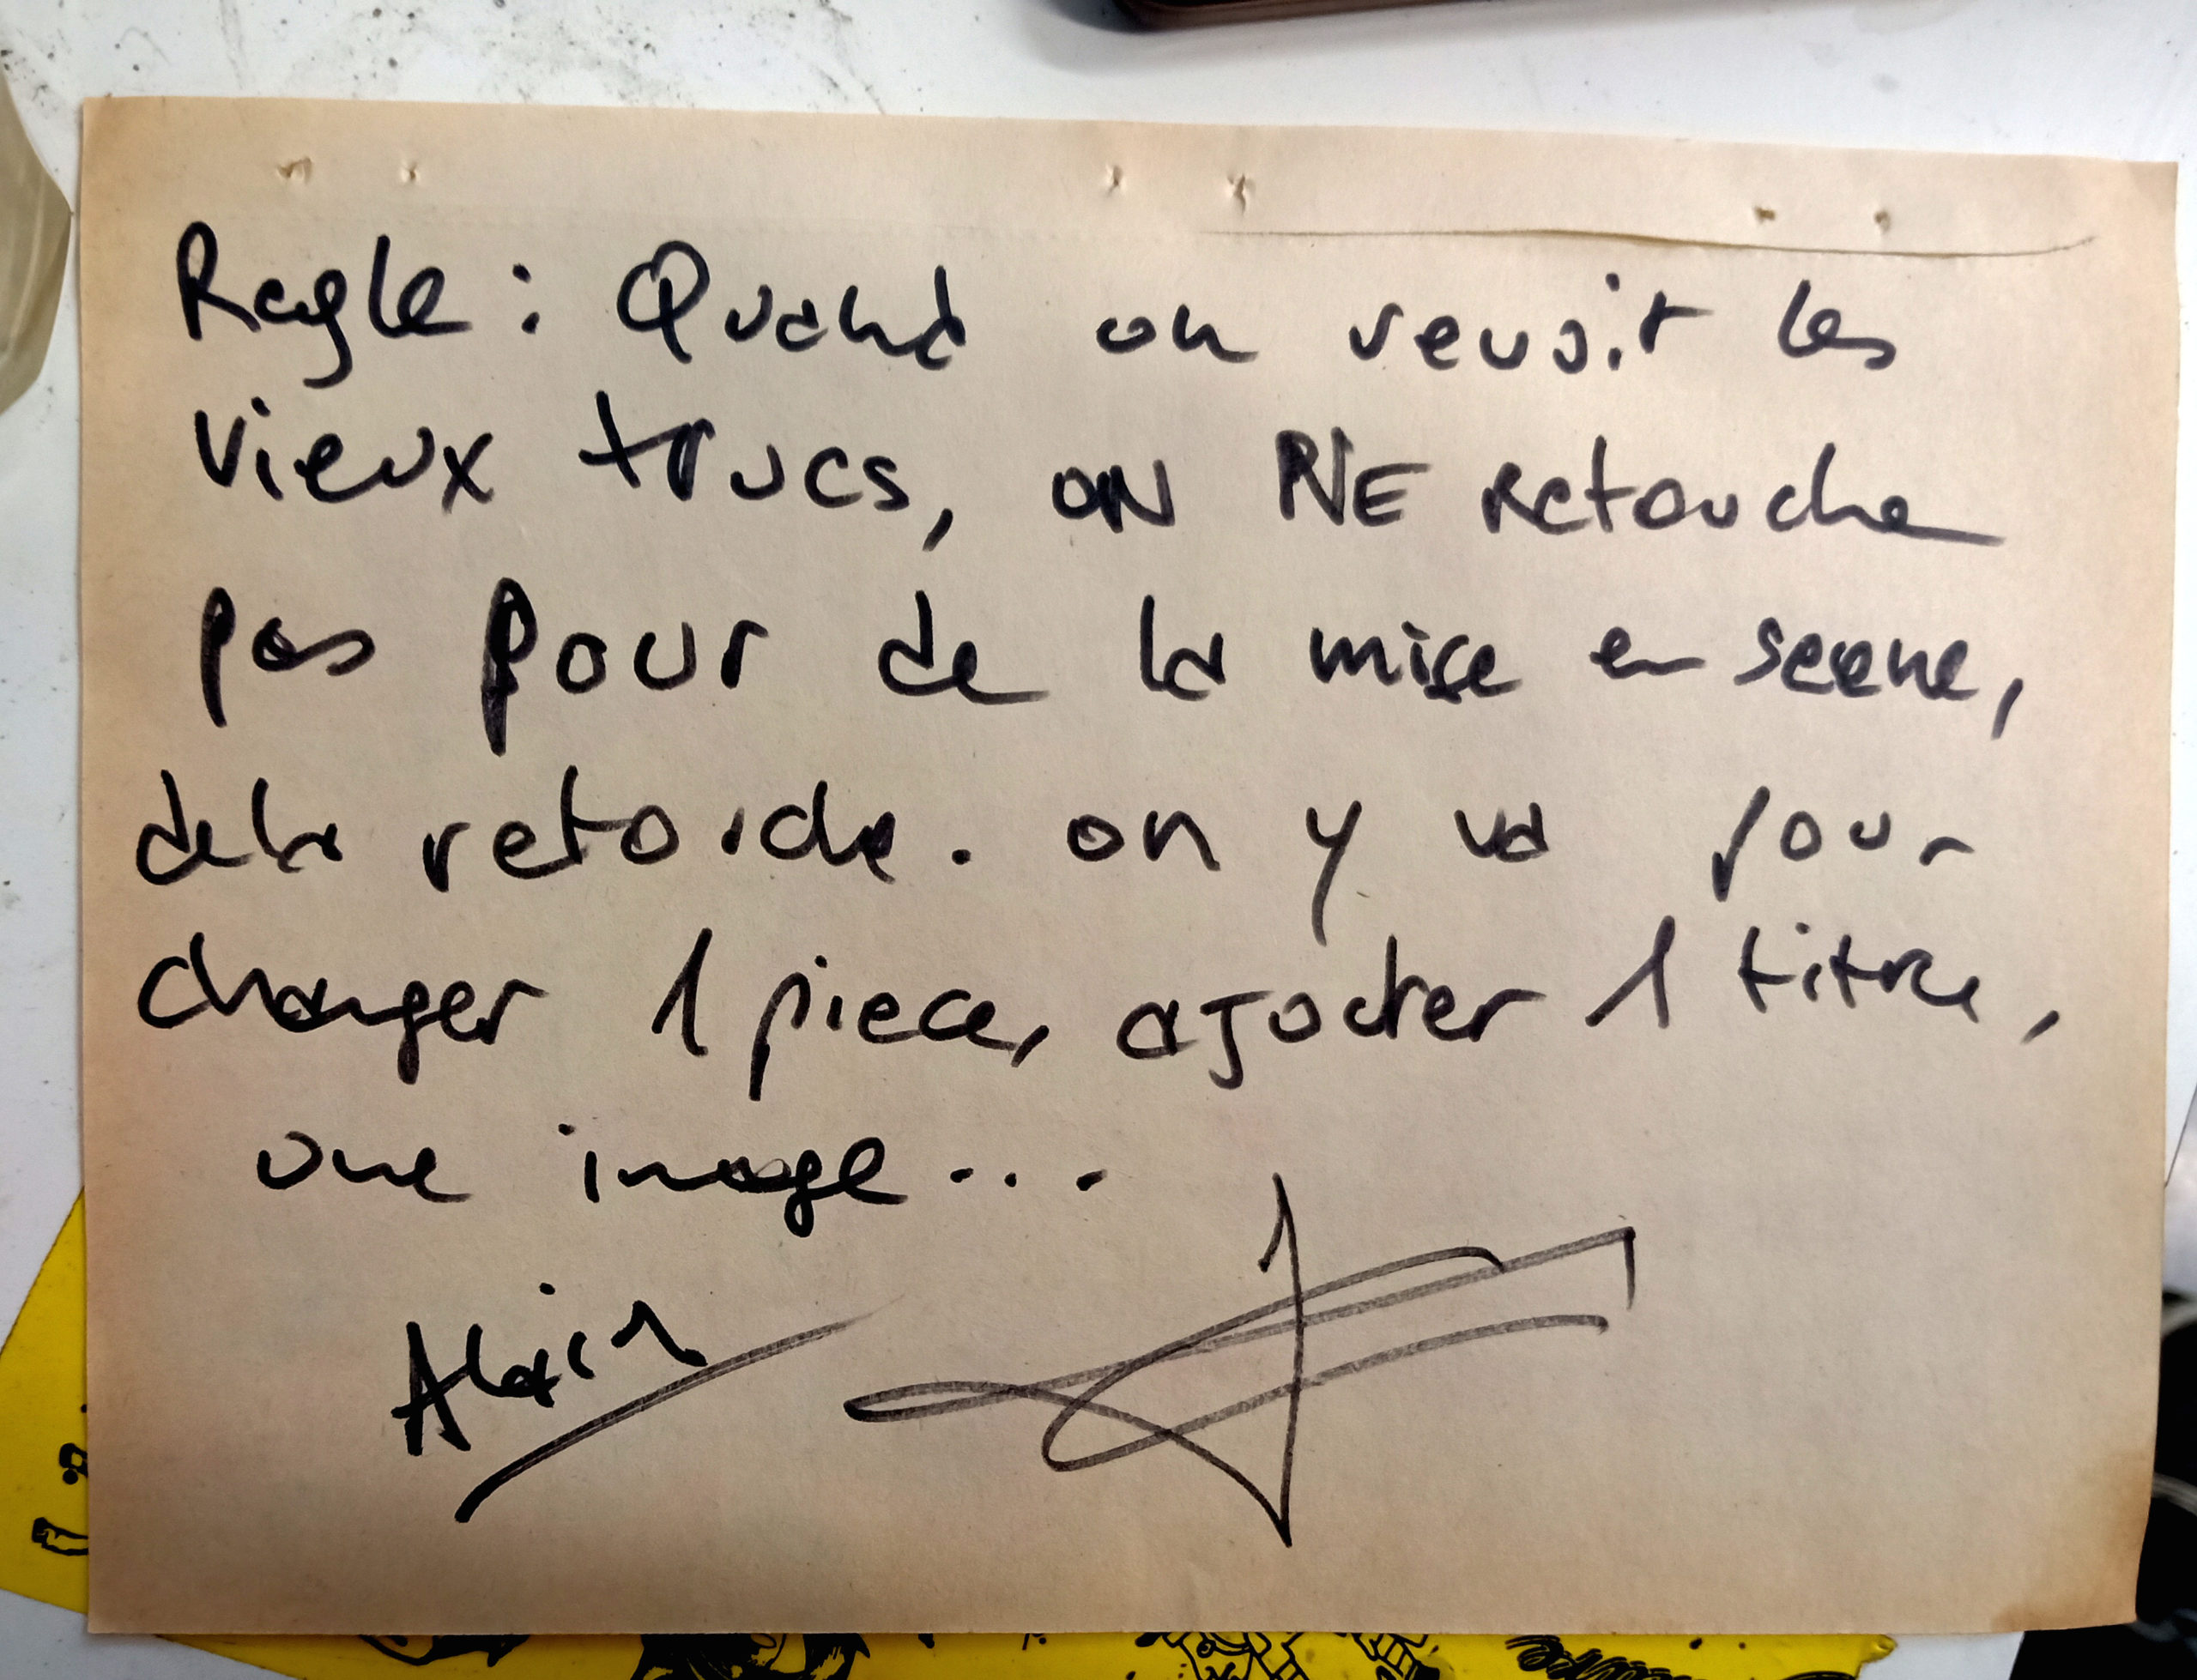 Regle : Quand on revoit les
vieux trucs, ON NE retouche
pas pour de la mise en scene,
de la retouche. on y va pour
changer 1 piece, ajouter 1 titre,
une image...
Alain